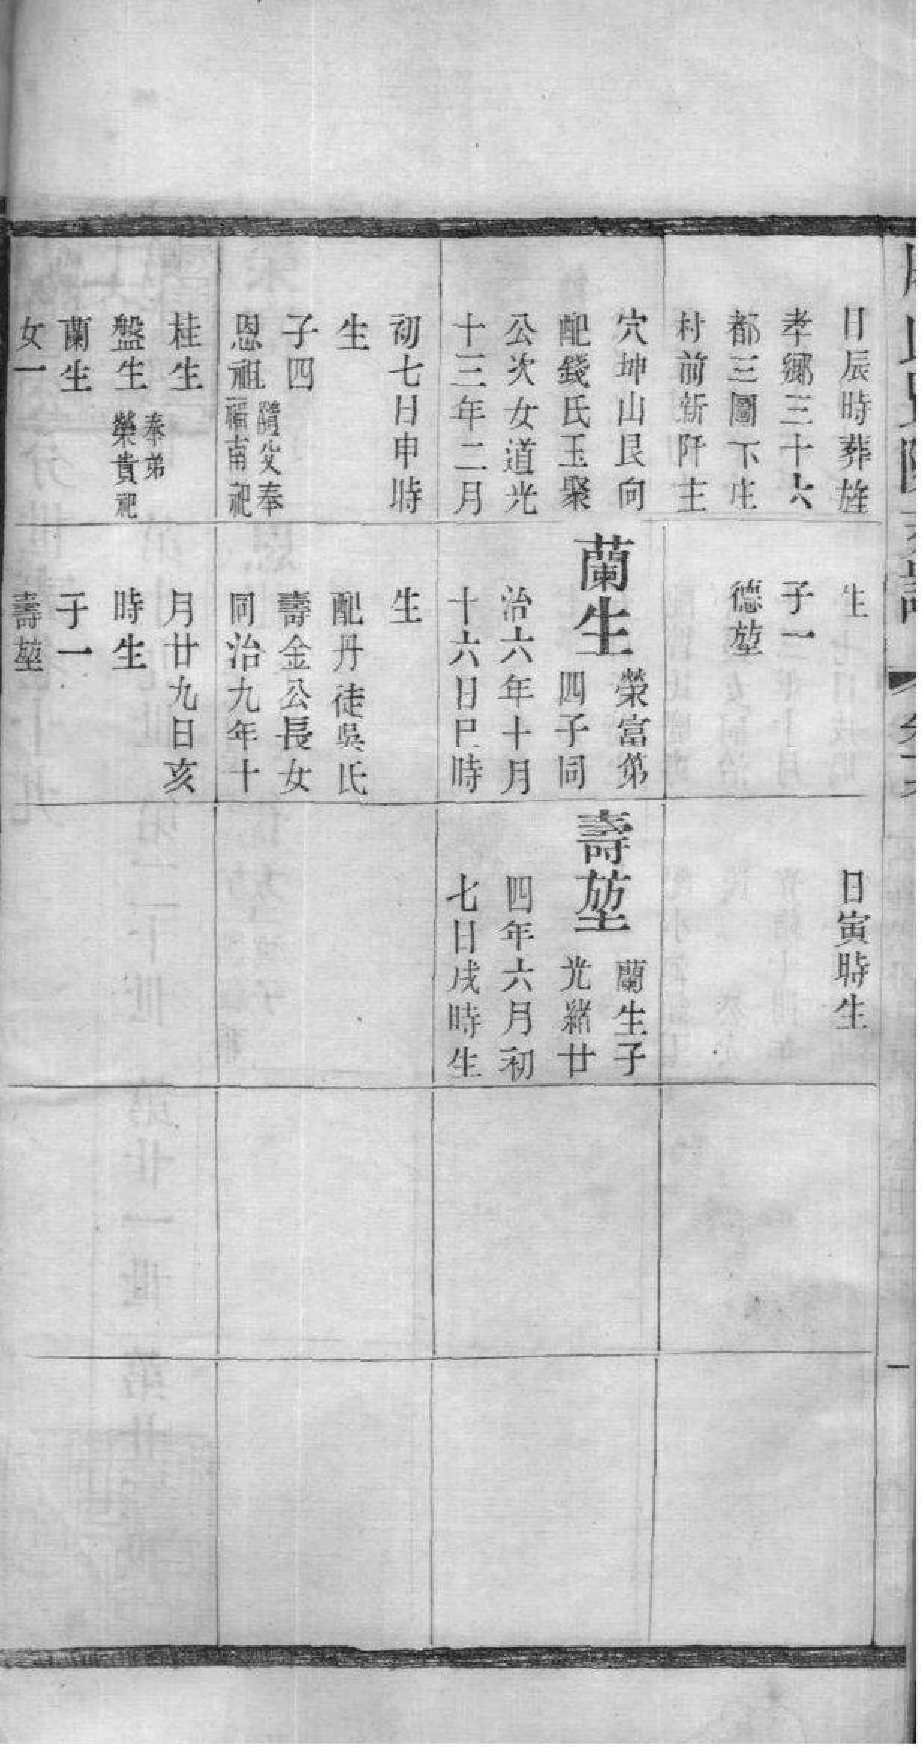 日辰時葬旌
孝鄉三十六
都三圖下庄
村前新阡主
穴坤山艮向
配錢氏玉聚
公次女道光
十三年二月
初七日申時
生
子四
恩祖 隨父奉福南祀
桂生
盤生 奉弟榮貴祀
蘭生
女一
生
子一
德堃
蘭生 榮富第
四子同
治六年十月
十六日巳時
生
配丹徒吳氏
壽金公長女
同治九年十
月廿九日亥
時生
子一
壽堃
日寅時生
壽堃 蘭生子
光緒廿
四年六月初
七日戌時生